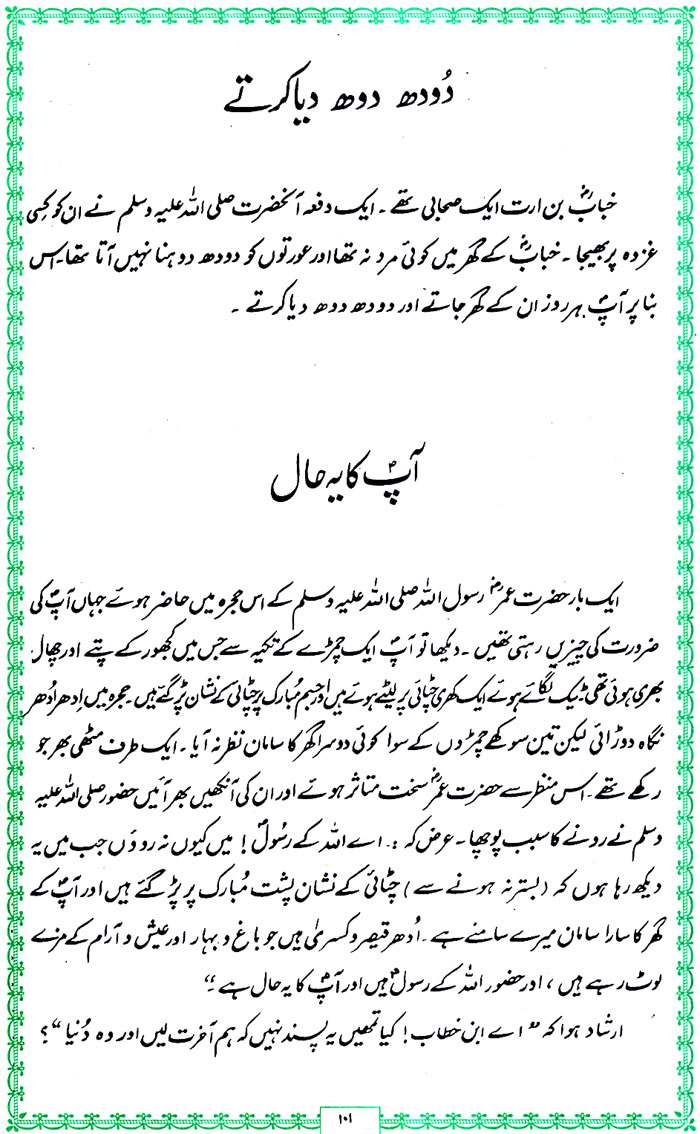 دُودھ دوھ دیا کرتے
خبابؓ بن ارت ایک صحابی تھے ۔ ایک دفعہ آنحضرت صلی اللہ علیہ وسلم نے ان کو کِسی
غزوہ پر بھیجا ۔ خبابؓ کے گھر میں کوئی مرد نہ تھا اور عورتوں کو دودھ دوہنا نہیں آتا تھا۔ اس
بنا پر آپؐ ہر روز ان کے گھر جاتے اور دودھ دوھ دیا کرتے ۔
آپؐ کا یہ حال
ایک بار حضرت عمرؓ رسول اللہ صلی اللہ علیہ وسلم کے اس حجرہ میں حاضر ہوئے جہاں آپؐ کی
ضرورت کی چیزیں رہتی تھیں ۔ دیکھا تو آپؐ ایک چمڑے کے تکیہ سے جس میں کھجور کے پتے اور چھال
بھری ہوئی تھی ٹیک لگائے ہوئے ایک کھری چٹائی پر لیٹے ہوئے ہیں اور جسم مُبارک پر چٹائی کے نشان پڑ گئے ہیں۔ حجرہ میں اِدھر اُدھر
نگاہ دوڑائی لیکن تین سوکھے چمڑوں کے سوا کوئی دوسرا گھر کا سامان نظر نہ آیا ۔ ایک طرف مٹھی بھر جو
رکھے تھے ۔ اس منظر سے حضرت عمرؓ سخت متاثر ہوئے اور ان کی آنکھیں بھر آئیں حضور صلی اللہ علیہ
وسلم نے رونے کا سبب پوچھا ۔ عرض کہ :۔ اے اللہ کے رسُولؐ ! میں کیوں نہ روؤں جب میں یہ
دیکھ رہا ہوں کہ (بستر نہ ہونے سے) چٹائی کے نشان پشت مُبارک پر پڑ گئے ہیں اور آپؐ کے
گھر کا سارا سامان میرے سامنے ہے ۔ اُدھر قیصر و کسریٰ ہیں جو باغ و بہار اور عیش و آرام کے مزے
لوٹ رہے ہیں ، اور حضور اللہ کے رسولؐ ہیں اور آپؐ کا یہ حال ہے ۔"
ارشاد ہوا کہ " اے ابن خطاب ! کیا تمھیں یہ پسند نہیں کہ ہم آخرت لیں اور وہ دُنیا "؟
۱۰۱